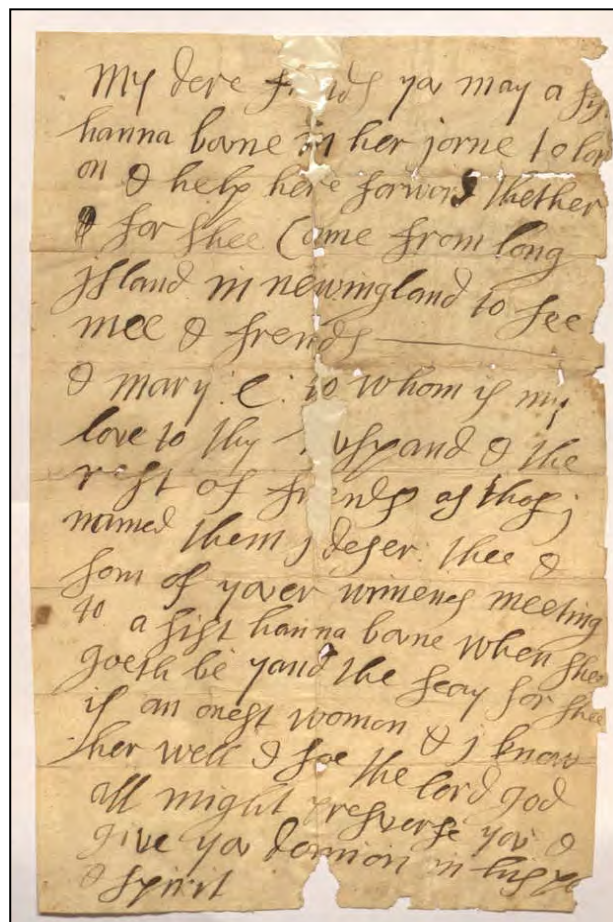 my dere frends you may a sis
hanna bovne in her jorne to lon
on & help here forward thether
& for shee Came from long
jsland in newingland to see
mee & frends
& mary : e : to whom is my
love to thy husband & the
rest of frends as thof j
named them j deser thee &
som of yover wimens meeting
to a sist hanna bovne when shee
goeth be yand the seay for shee
is an onest woman & j know
her well & soe the lord god
all might preserve you &
give you domion in his
& spirit